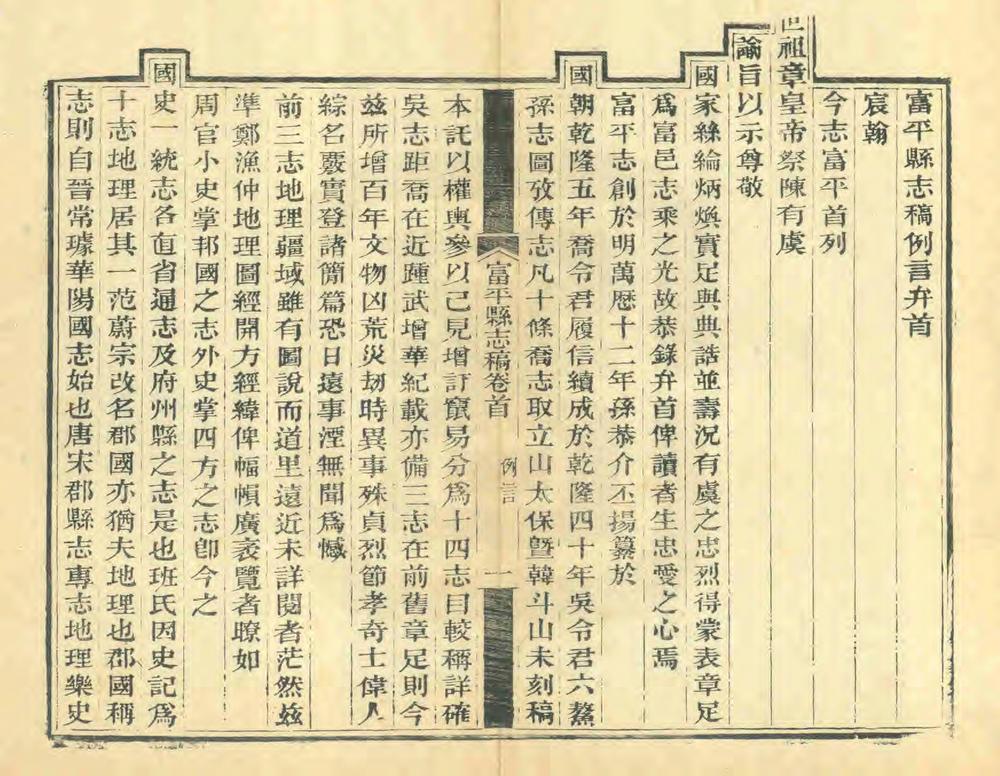 富平縣志稿例言弁首
宸翰
今志富平首列
世祖章皇帝祭陳有虞
諭旨以示尊敬
國家絲綸炳煥實足與典誥並壽況有虞之忠烈得蒙表章足
爲富邑志乘之光故恭錄弁首俾讀者生忠愛之心焉
富平志創於明萬歷十二年孫恭介丕揚纂於
國朝乾隆五年喬令君履信續成於乾隆四十年吳令君六鰲
孫志圖攷傳志凡十條喬志取立山太保曁韓斗山未刻稿
富平縣志稿卷首
例言
一
本託以權輿參以己見增訂竄易分爲十四志目較稱詳確
吳志距喬在近踵武增華紀載亦備三志在前舊章足則今
玆所增百年文物凶荒災刼時異事殊貞烈節孝奇士偉人
綜名覈實登諸簡篇恐日遠事湮無聞爲憾
前三志地理疆域雖有圖說而道里遠近未詳閱者茫然玆
準鄭漁仲地理圖經開方經緯俾幅幀廣袤覽者瞭如
周官小史掌邦國之志外史掌四方之志卽今之
國史一統志各直省通志及府州縣之志是也班氏因史記爲
十志地理居其一范蔚宗改名郡國亦猶夫地理也郡國稱
志則自晉常璩華陽國志始也唐宋郡縣志專志地理樂史